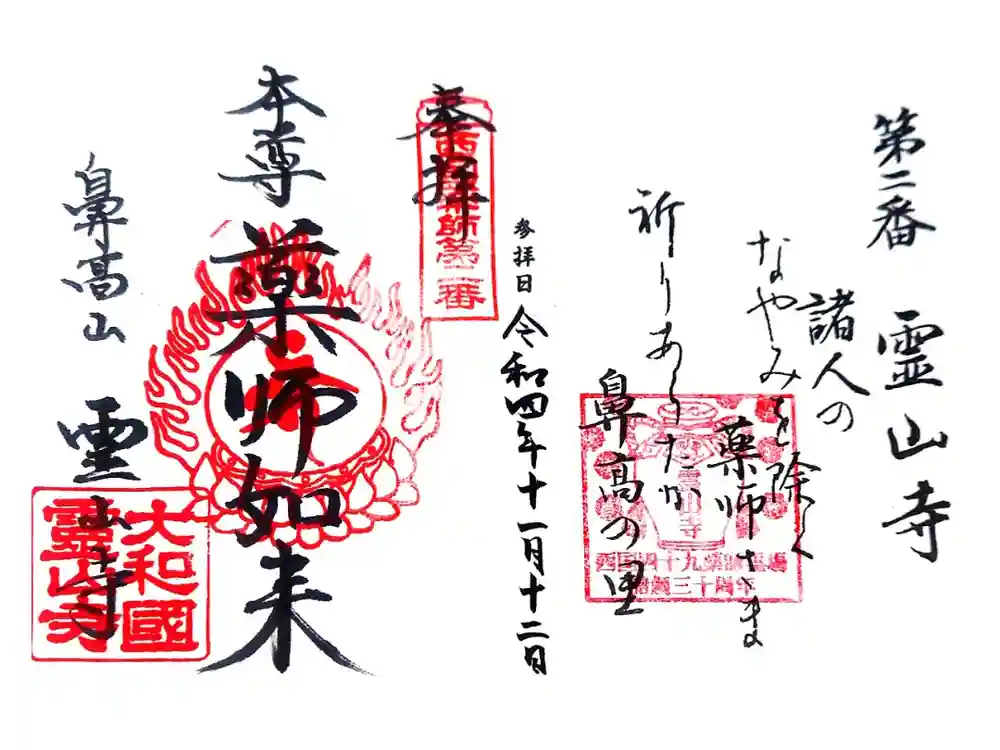 第二番 霊山寺
諸人の
なやみを除く
薬師さま
祈りあらたか
鼻高の里
西国四十九薬師霊場
開創三十周年
霊山寺
参拝日 令和四年十一月十二日
奉拝
西国薬師第二番
本尊 薬師如来
鼻高山 霊山寺
大和國
霊山寺